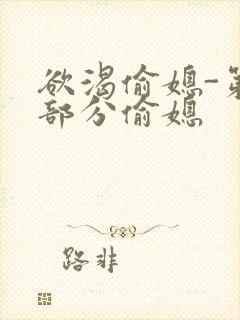 欲渴偷媳-第
部分偷媳
路非